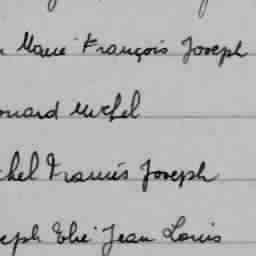 Marie François Joseph
Michel
chel Francis Joseph
eph Elie Jean Louis